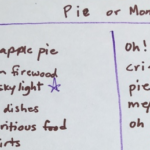 Pie or Mon
apple pie
n firewood
skylight
dishes
ritious food
irts
oh!
cri-
pie
me
oh